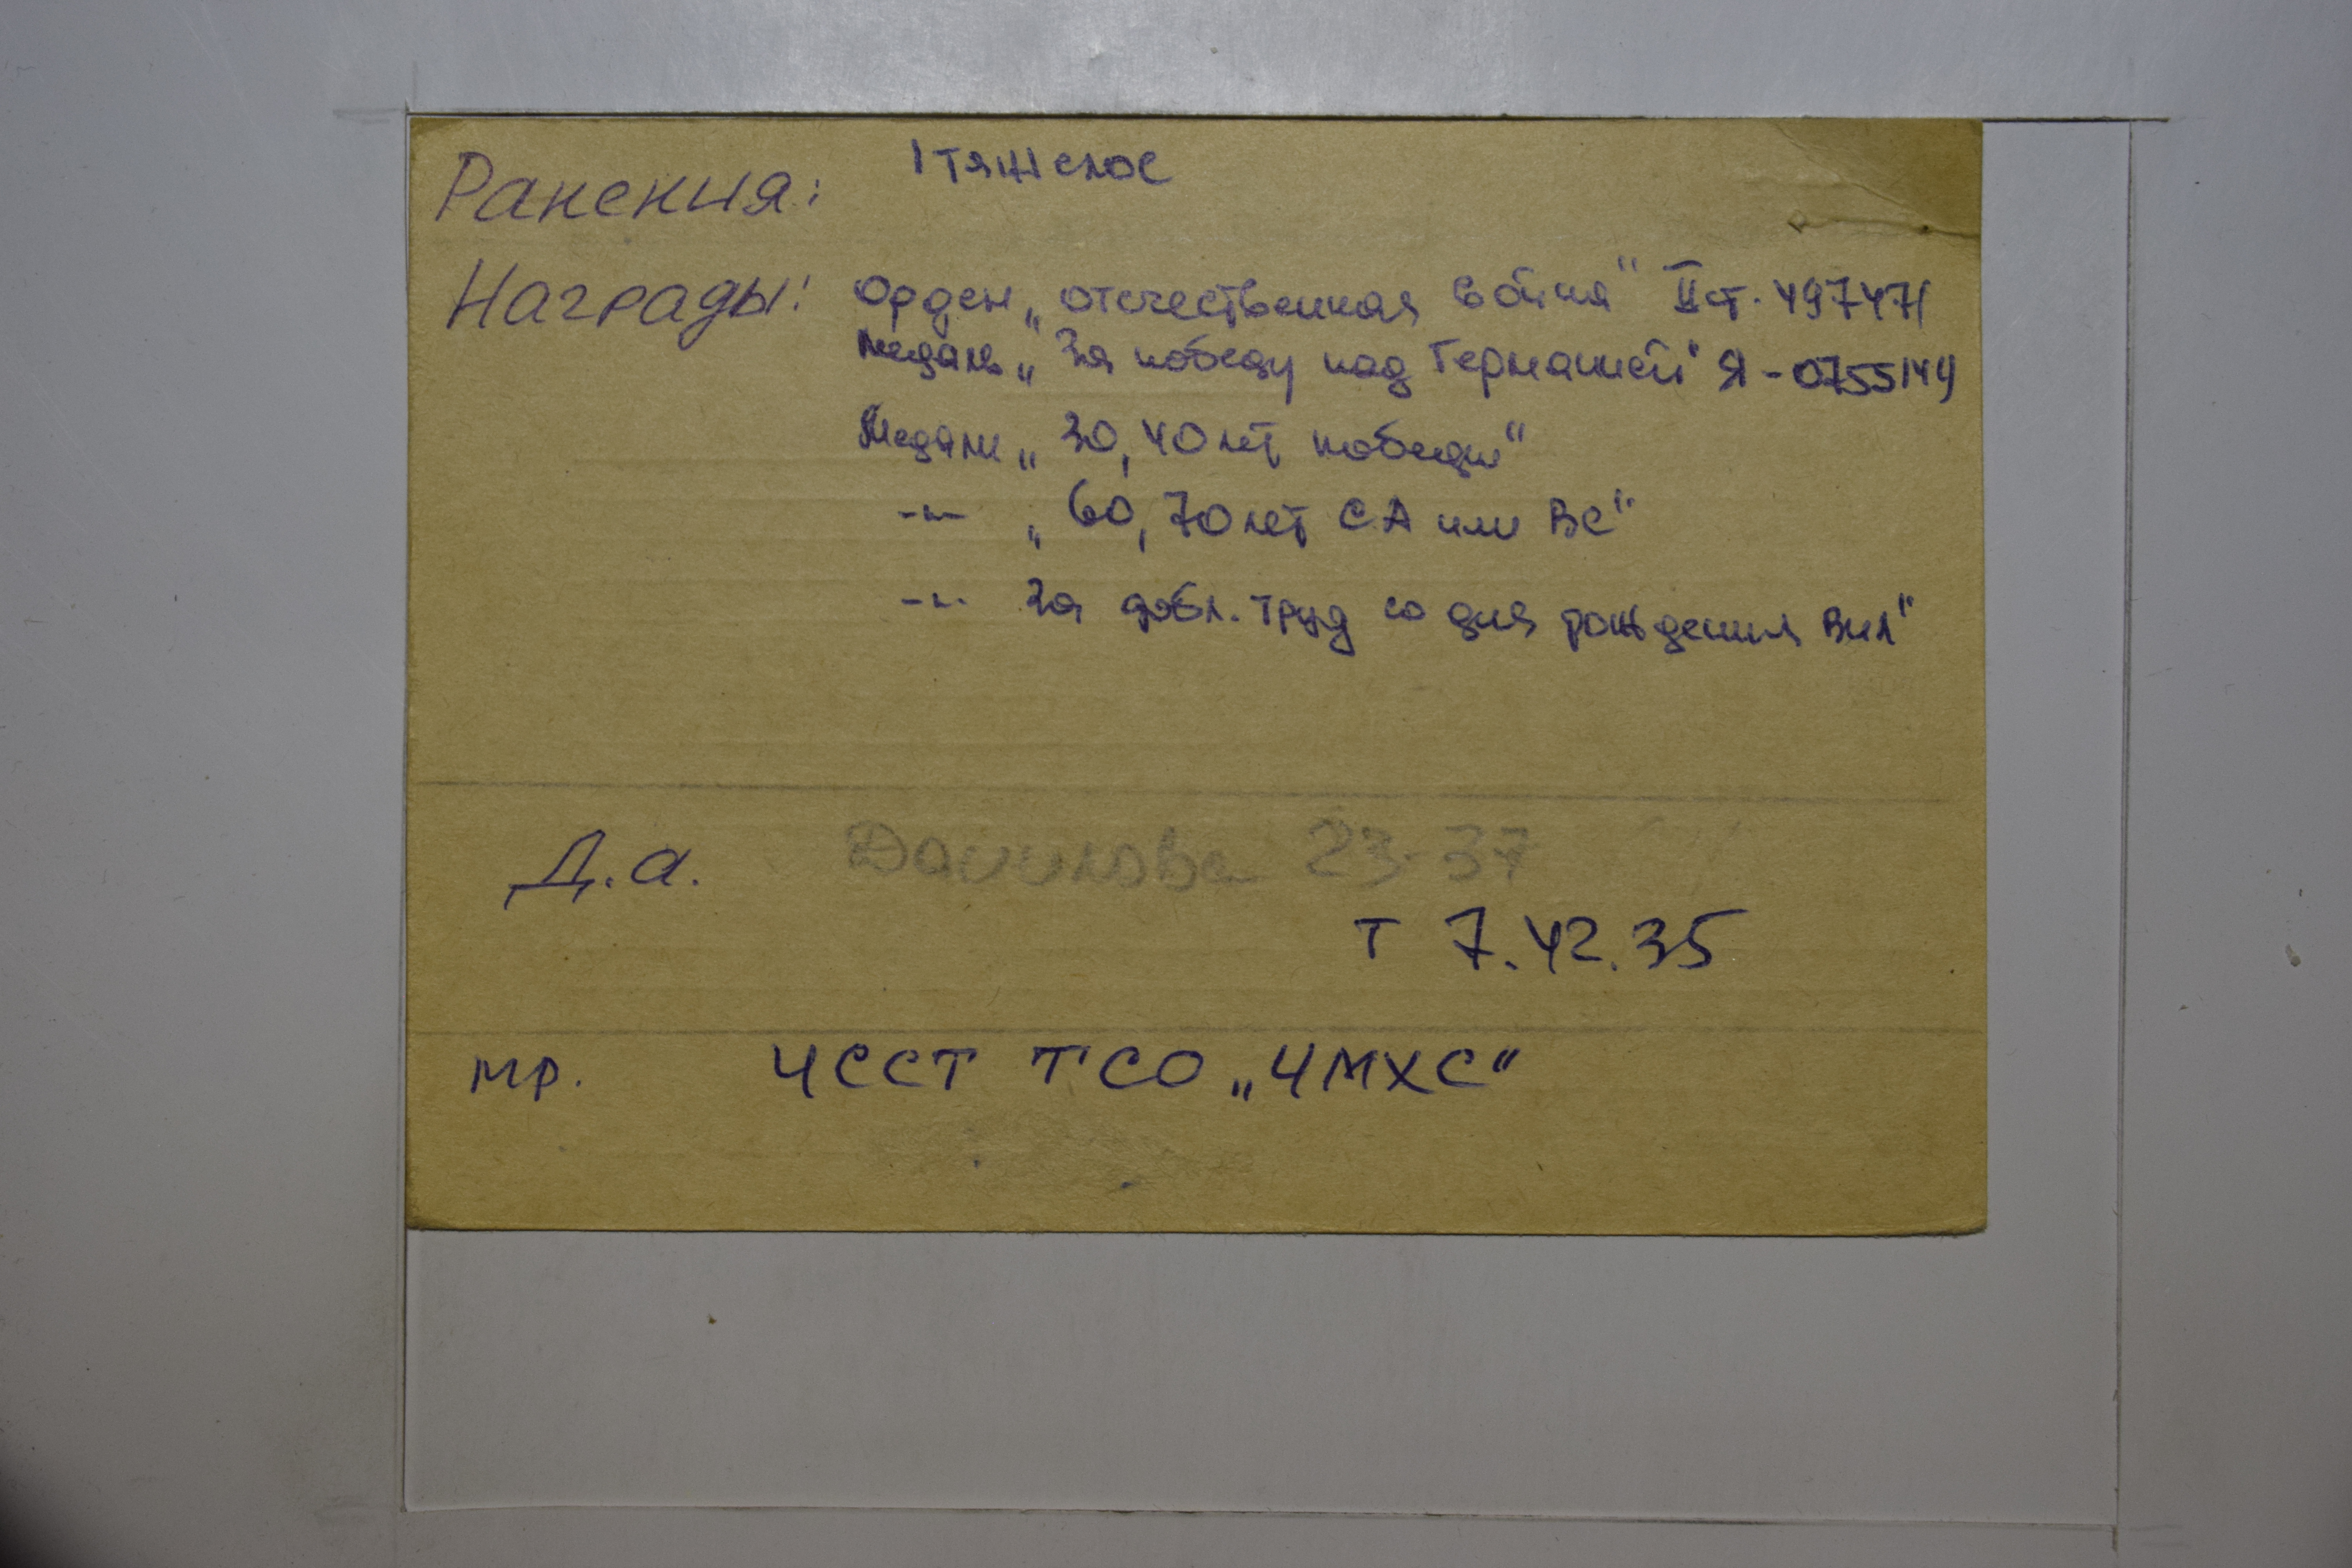 Ранения: 1 тяжелое
Награды: Орден „Отечественная война“ II ст. 497471
Медаль „За победу над Германией“ Я-0755144
Медали „30, 40 лет победы“
-"- „60, 70 лет СА или ВС“
-"- За добл. труд со дня рождения Вил“
Д.а. Данилова 23-37
т 7.42.35
мр. ЧССТ ТСО „ЧМХС“